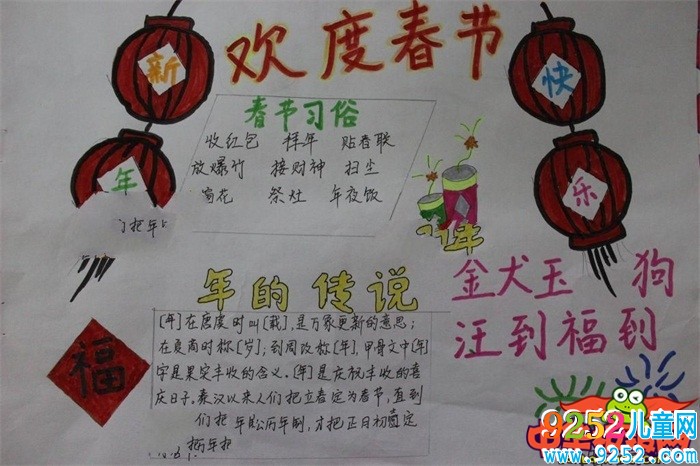 欢度春节
新 快
年 乐
春节习俗
收红包 拜年 贴春联
放爆竹 接财神 扫尘
窗花 祭灶 年夜饭
门把年
年的传说
金犬玉 狗
汪到福到
福
[年]在唐虞时叫[载],是万象更新的意思;
在夏商时称[岁];到周改称[年],甲骨文中[年]
字是果实丰收的含义。[年]是庆祝丰收的喜
庆日子,秦汉以来人们把立春定为春节,直到
们把 年 公历年 ,才把正月初 定
9252儿童网
www.9252.com